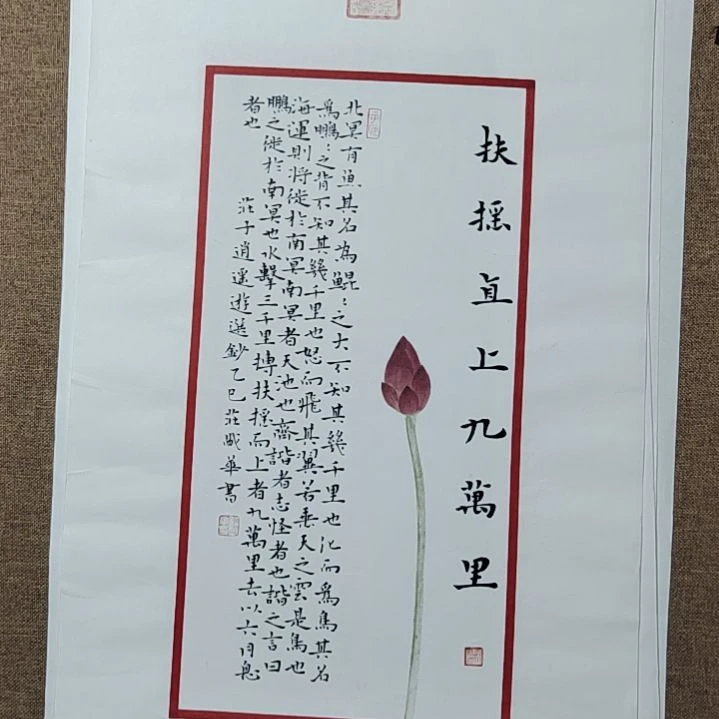 扶搖直上九萬里
北冥有魚其名為鯤:之大不知其幾千里也化而爲鳥其名
爲鵬:之背不知其幾千里也怒而飛其翼若垂天之雲是鳥也
海運則將徙於南冥南冥者天池也齊諧者志怪者也諧之言曰
鵬之徙於南冥也水擊三千里摶扶搖而上者九萬里去以六月息
者也
莊子逍遙遊選鈔乙巳莊華書